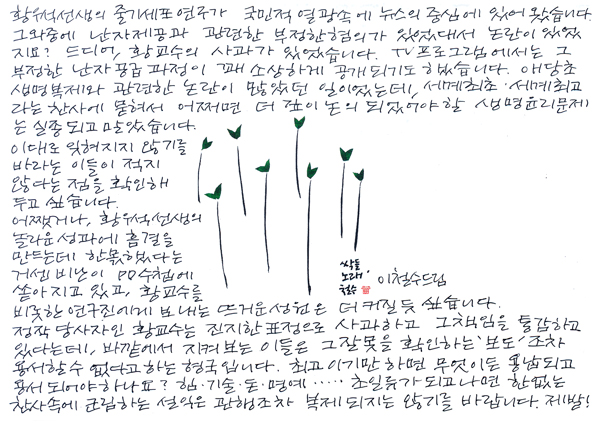 황우석선생의 줄기세포 연구가 국민적 열광속에 뉴스의 중심에 있어 왔습니다.
그와중에 난자제공과 관련한 부정한 혐의가 있었대서 논란이 있었
지요? 드디어, 황교수의 사과가 있었습니다. TV프로그램에서는 그
부정한 난자공급 과정이 꽤 소상하게 공개되기도 했습니다. 애당초
생명복제와 관련한 논란이 많았던 일이었는데, 세계최초·세계최고
라는 찬사에 묻혀서 어쩌면 더 깊이 논의 되었어야 할 생명윤리문제
는 실종되고 말았습니다.
이대로 잊혀지지 않기를
바라는 이들이 적지
않다는 점을 확인해
두고 싶습니다.
어쨌거나, 황우석선생의
놀라운 성과에 흠결을
만드는데 한몫했다는
거센 비난이 PD수첩에
쏟아지고 있고, 황교수를
비롯한 연구진에게 보내는 뜨거운 성원은 더 커질듯 싶습니다.
정작 당사자인 황교수는 진지한 표정으로 사과하고 그 책임을 통감하고
있다는데, 바깥에서 지켜보는 이들은 그 잘못을 확인하는 '보도' 조차
용서할 수 없다고 하는 형국입니다. 최고이기만 하면 무엇이든 용납되고
용서 되어야 하나요? 힘·기술·돈·명예 ····· 초일류가 되고나면 한없는
찬사속에 군림하는 설익은 관행조차 복제 되지는 않기를 바랍니다. 제발!
싹들
노래.
철수
이철수드림